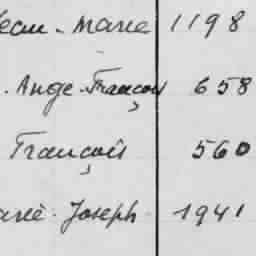 Jean-Marie 1198
. Ange-François 658
François 560
Marie-Joseph 1941